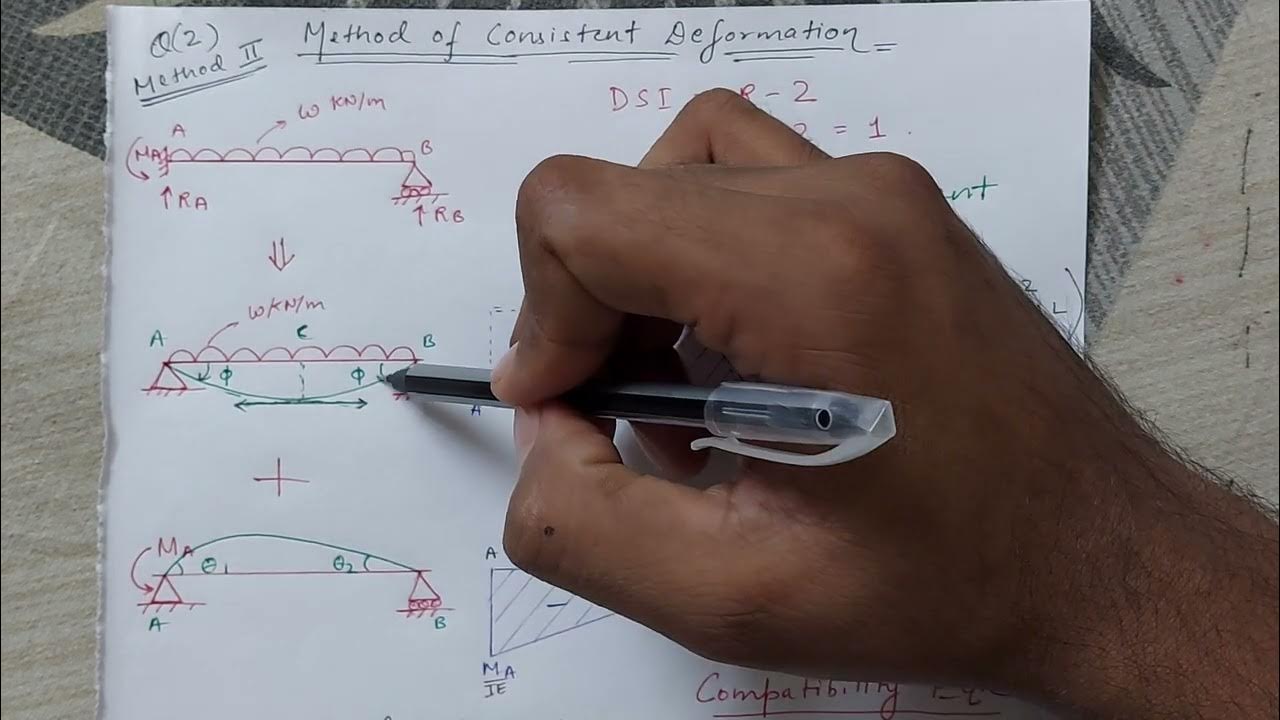 Q(2) Method of Consistent Deformation =
Method II
DSI R - 2
2 = 1 .
w KN/m
A
MA
B
↑RA
↑RB
⇓
w KN/m
A
C
B
φ
φ
A
+
MA
θ1
θ2
A
B
A
-
MA
IE
Compatibility